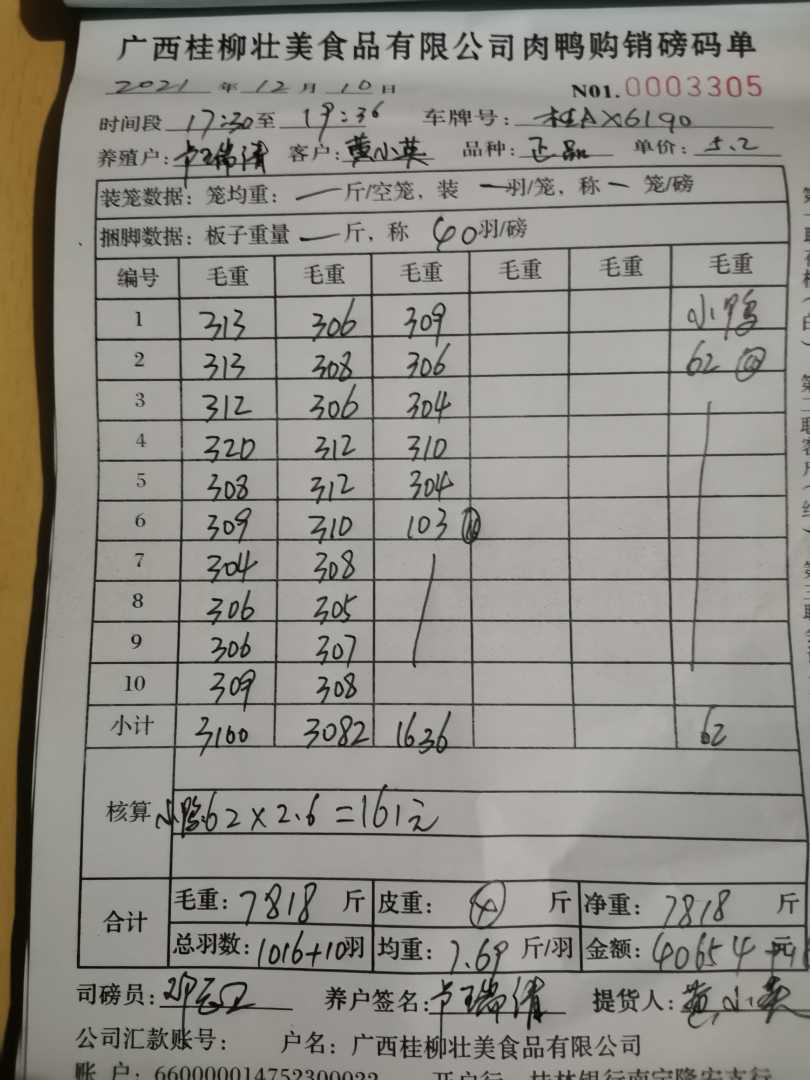 广西桂柳壮美食品有限公司肉鸭购销磅码单
2021年12月10日 NO1.0003305
时间段 17:30至 19:36 车牌号: 桂AX6190
养殖户: 卢瑞清 客户: 黄小英 品种: 正品 单价: 5.2
装笼数据: 笼均重: 一斤/空笼, 装 一羽/笼, 称一 笼/磅
捆脚数据: 板子重量 一斤, 称 40羽/磅
编号 毛重 毛重 毛重 毛重 毛重 毛重
1 313 306 309 小鸭
2 313 308 306 62 ⑩
3 312 306 304
4 320 312 310
5 308 312 304
6 309 310 103
7 304 308
8 306 305
9 306 307
10 309 308
小计 3100 3082 1636 62
核算 小鸭62×2.6=161元
合计 毛重: 7818 斤 皮重: 斤 净重: 7818 斤
总羽数: 1016+10羽 均重: 7.69 斤/羽 金额: 40654
司磅员: 养户签名: 卢瑞清 提货人: 黄小英
公司汇款账号: 户名: 广西桂柳壮美食品有限公司
账户: 660000014752300022 开户行 桂林银行南宁隆安支行